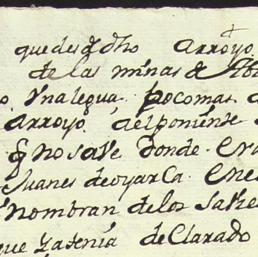 quedesq̃ dho Arroyo
de las minas de
Vna legua, pocomas
Arroyo, del poniente
q̃ no save donde
Juanes de oyarca.
nombran de los
que ya tenia declarado